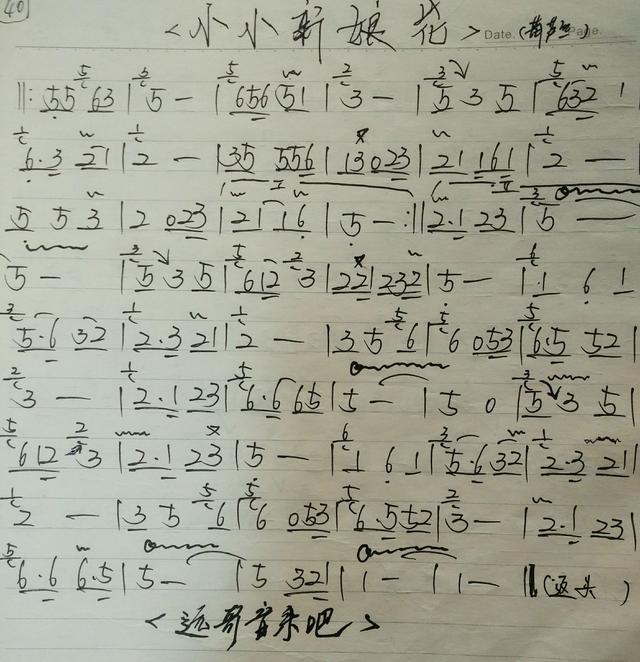 40
<小小新娘花> Date. (葫芦丝) Page.
||: 55 63 | 5 - | 656 51 | 3 - | 5 3 5 | 632 1
6·3 21 | 2 - | 35 556 | 13 023 | 21 161 | 2 -
5 5 3 | 2 023 | 21 16 | 5 - :|| 2·1 23 | 5 -
5 - | 5 3 5 | 612 3 | 22 232 | 5 - | 1 6 1
5·6 32 | 2·3 21 | 2 - | 35 6 | 6 053 | 6·5 52 |
3 - | 2·1 23 | 6·6 65 | 5 - | 5 0 | 5 3 5 |
612 3 | 2·1 23 | 5 - | 1 6 1 | 5·6 32 | 2·3 21 |
2 - | 35 6 | 6 053 | 6·5 52 | 3 - | 2·1 23 |
6·6 6·5 | 5 - | 5 32 | 1 - | 1 - || (返头)
<远哥音乐吧>